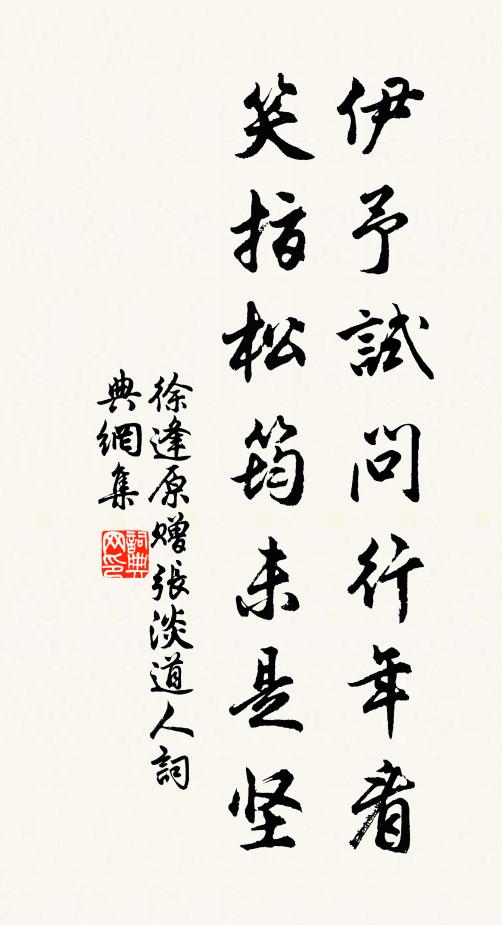 伊予試問行年看
笑指松筠未是坚
徐逢原赠張淡道人詞
典網集
詞典网印